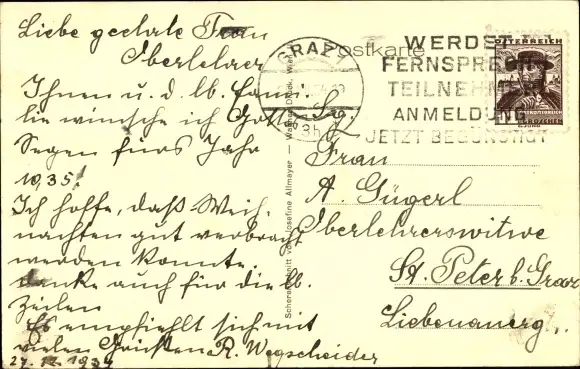 Liebe geehrte Frau
Oberlehrer
Ihnen u. d. lb. Fami-
lie wünsche ich Gottes
Segen fürs Jahr
1935!
Ich hoffe, daß Weih-
nachten gut verbracht
werden konnte.
danke auch für die lb.
Zeilen
Es empfiehlt sich mit
vielen Grüßen R. Wegscheider
27.12.1934
Postkarte
GRAZ 1
WERDET
FERNSPRECH-
TEILNEHMER
ANMELDUNG
JETZT BEGÜNSTIGT
ÖSTERREICH
Scherenschnitt von Josefine Allmayer — Druck, Wien
Frau
A. Gügerl
Oberlehrerswitwe
St. Peter b. Graz
Liebenauerg.